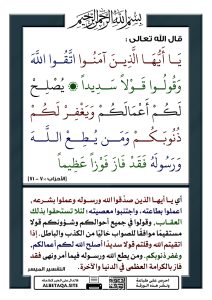 بسم الله الرحمن الرحيم
قال الله تعالى :
يَا أَيُّهَا الَّذِينَ آمَنُوا اتَّقُوا اللَّهَ
وَقُولُوا قَوْلًا سَدِيدًا ۞ يُصْلِحْ
لَكُمْ أَعْمَالَكُمْ وَيَغْفِرْ لَكُمْ
ذُنُوبَكُمْ وَمَن يُطِعِ اللَّهَ
وَرَسُولَهُ فَقَدْ فَازَ فَوْزًا عَظِيمًا
[الأحزاب : ٧٠ - ٧١]
أي يا أيها الذين صدَّقوا الله ورسوله وعملوا بشرعه ،
اعملوا بطاعته ، واجتنبوا معصيته ؛ لئلا تستحقوا بذلك
العقاب ، وقولوا في جميع أحوالكم وشؤونكم قولا
مستقيمًا موافقًا للصواب خاليًا من الكذب والباطل. إذا
اتقيتم الله وقلتم قولا سديدًا أصلح الله لكم أعمالكم,
وغفر ذنوبكم. ومن يطع الله ورسوله فيما أمر ونهى فقد
فاز بالكرامة العظمى في الدنيا والآخرة.
التفسير الميسر
ALBETAQA.SITE